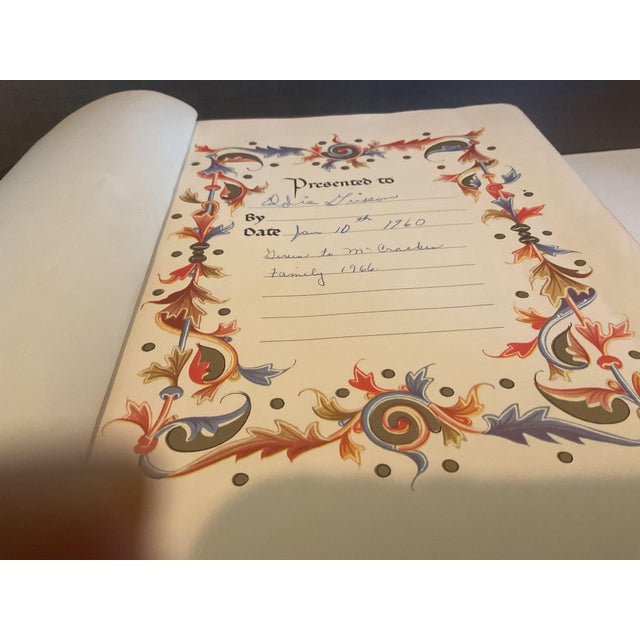 Presented to
By
Date Jan 10th 1960
Given to McCracken
Family 1966